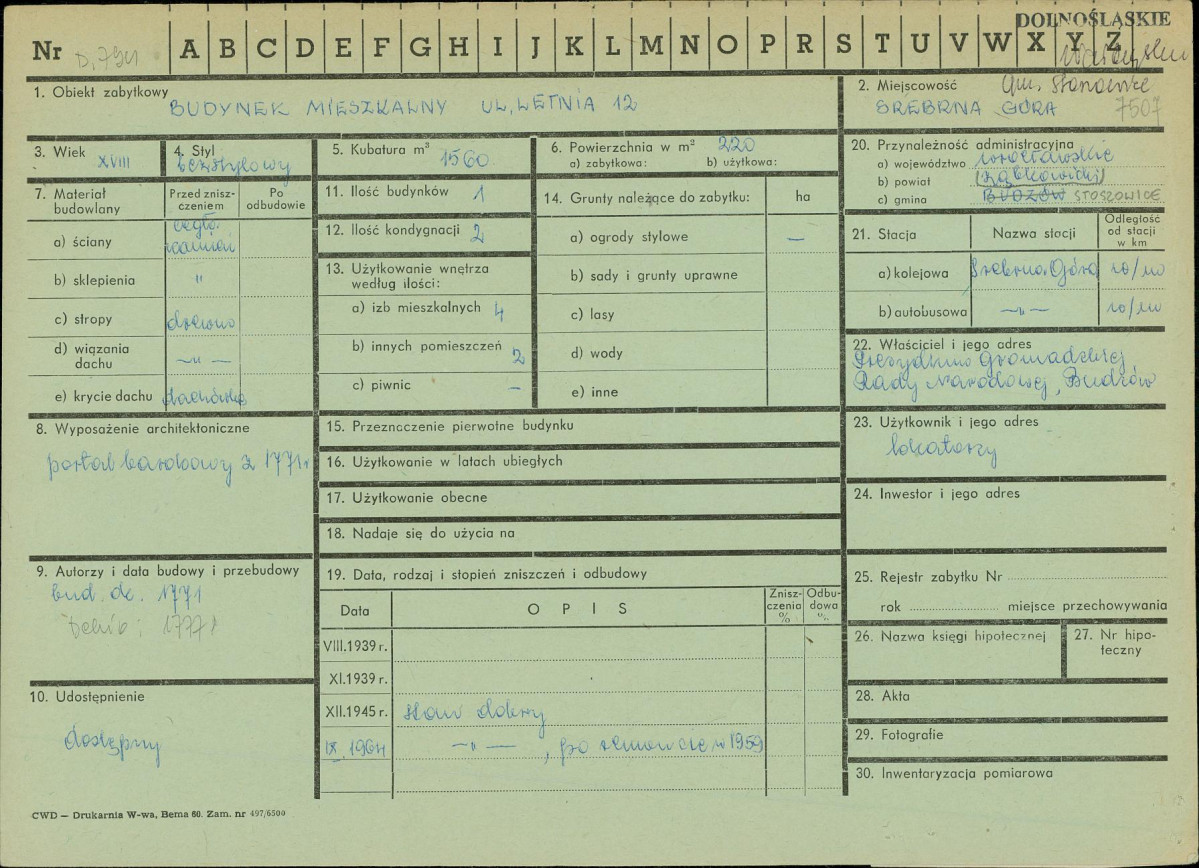 DOLNOŚLĄSKIE
Nr D.794 A B C D E F G H I J K L M N O P R S T U V W X Y Z
1. Obiekt zabytkowy
BUDYNEK MIESZKALNY UL. LETNIA 12
2. Miejscowość gm.
SREBRNA GÓRA 7507
3. Wiek XVIII
4. Styl
bezstylowy
5. Kubatura m³ 1560
6. Powierzchnia w m² 220
a) zabytkowa: b) użytkowa:
20. Przynależność administracyjna
a) województwo wrocławskie
b) powiat (ząbkowicki)
c) gmina BUDZÓW STOSZOWICE
7. Materiał budowlany
Przed zniszczeniem
Po odbudowie
a) ściany cegła, kamień
b) sklepienia "
c) stropy drewno
d) wiązania dachu —"—
e) krycie dachu dachówka
11. Ilość budynków 1
12. Ilość kondygnacji 2
13. Użytkowanie wnętrza według ilości:
a) izb mieszkalnych 4
b) innych pomieszczeń 2
c) piwnic –
14. Grunty należące do zabytku: ha
a) ogrody stylowe —
b) sady i grunty uprawne
c) lasy
d) wody
e) inne
21. Stacja
Nazwa stacji
Odległość od stacji w km
a) kolejowa Srebrna Góra w/m
b) autobusowa —"— w/m
22. Właściciel i jego adres
Prezydium Gromadzkiej
Rady Narodowej, Budzów
8. Wyposażenie architektoniczne
portal barokowy z 1771 r
15. Przeznaczenie pierwotne budynku
16. Użytkowanie w latach ubiegłych
17. Użytkowanie obecne
18. Nadaje się do użycia na
23. Użytkownik i jego adres
lokatorzy
24. Inwestor i jego adres
9. Autorzy i data budowy i przebudowy
bud. ok. 1771
Dehio: 1777
19. Data, rodzaj i stopień zniszczeń i odbudowy
Data
OPIS
Zniszczenia %
Odbudowa %
VIII.1939 r.
XI.1939 r.
XII.1945 r. stan dobry
IX.1964 —"—, po remoncie w 1959
25. Rejestr zabytku Nr
rok miejsce przechowywania
26. Nazwa księgi hipotecznej
27. Nr hipoteczny
28. Akta
29. Fotografie
30. Inwentaryzacja pomiarowa
10. Udostępnienie
dostępny
CWD — Drukarnia W-wa, Bema 60. Zam. nr 497/6500